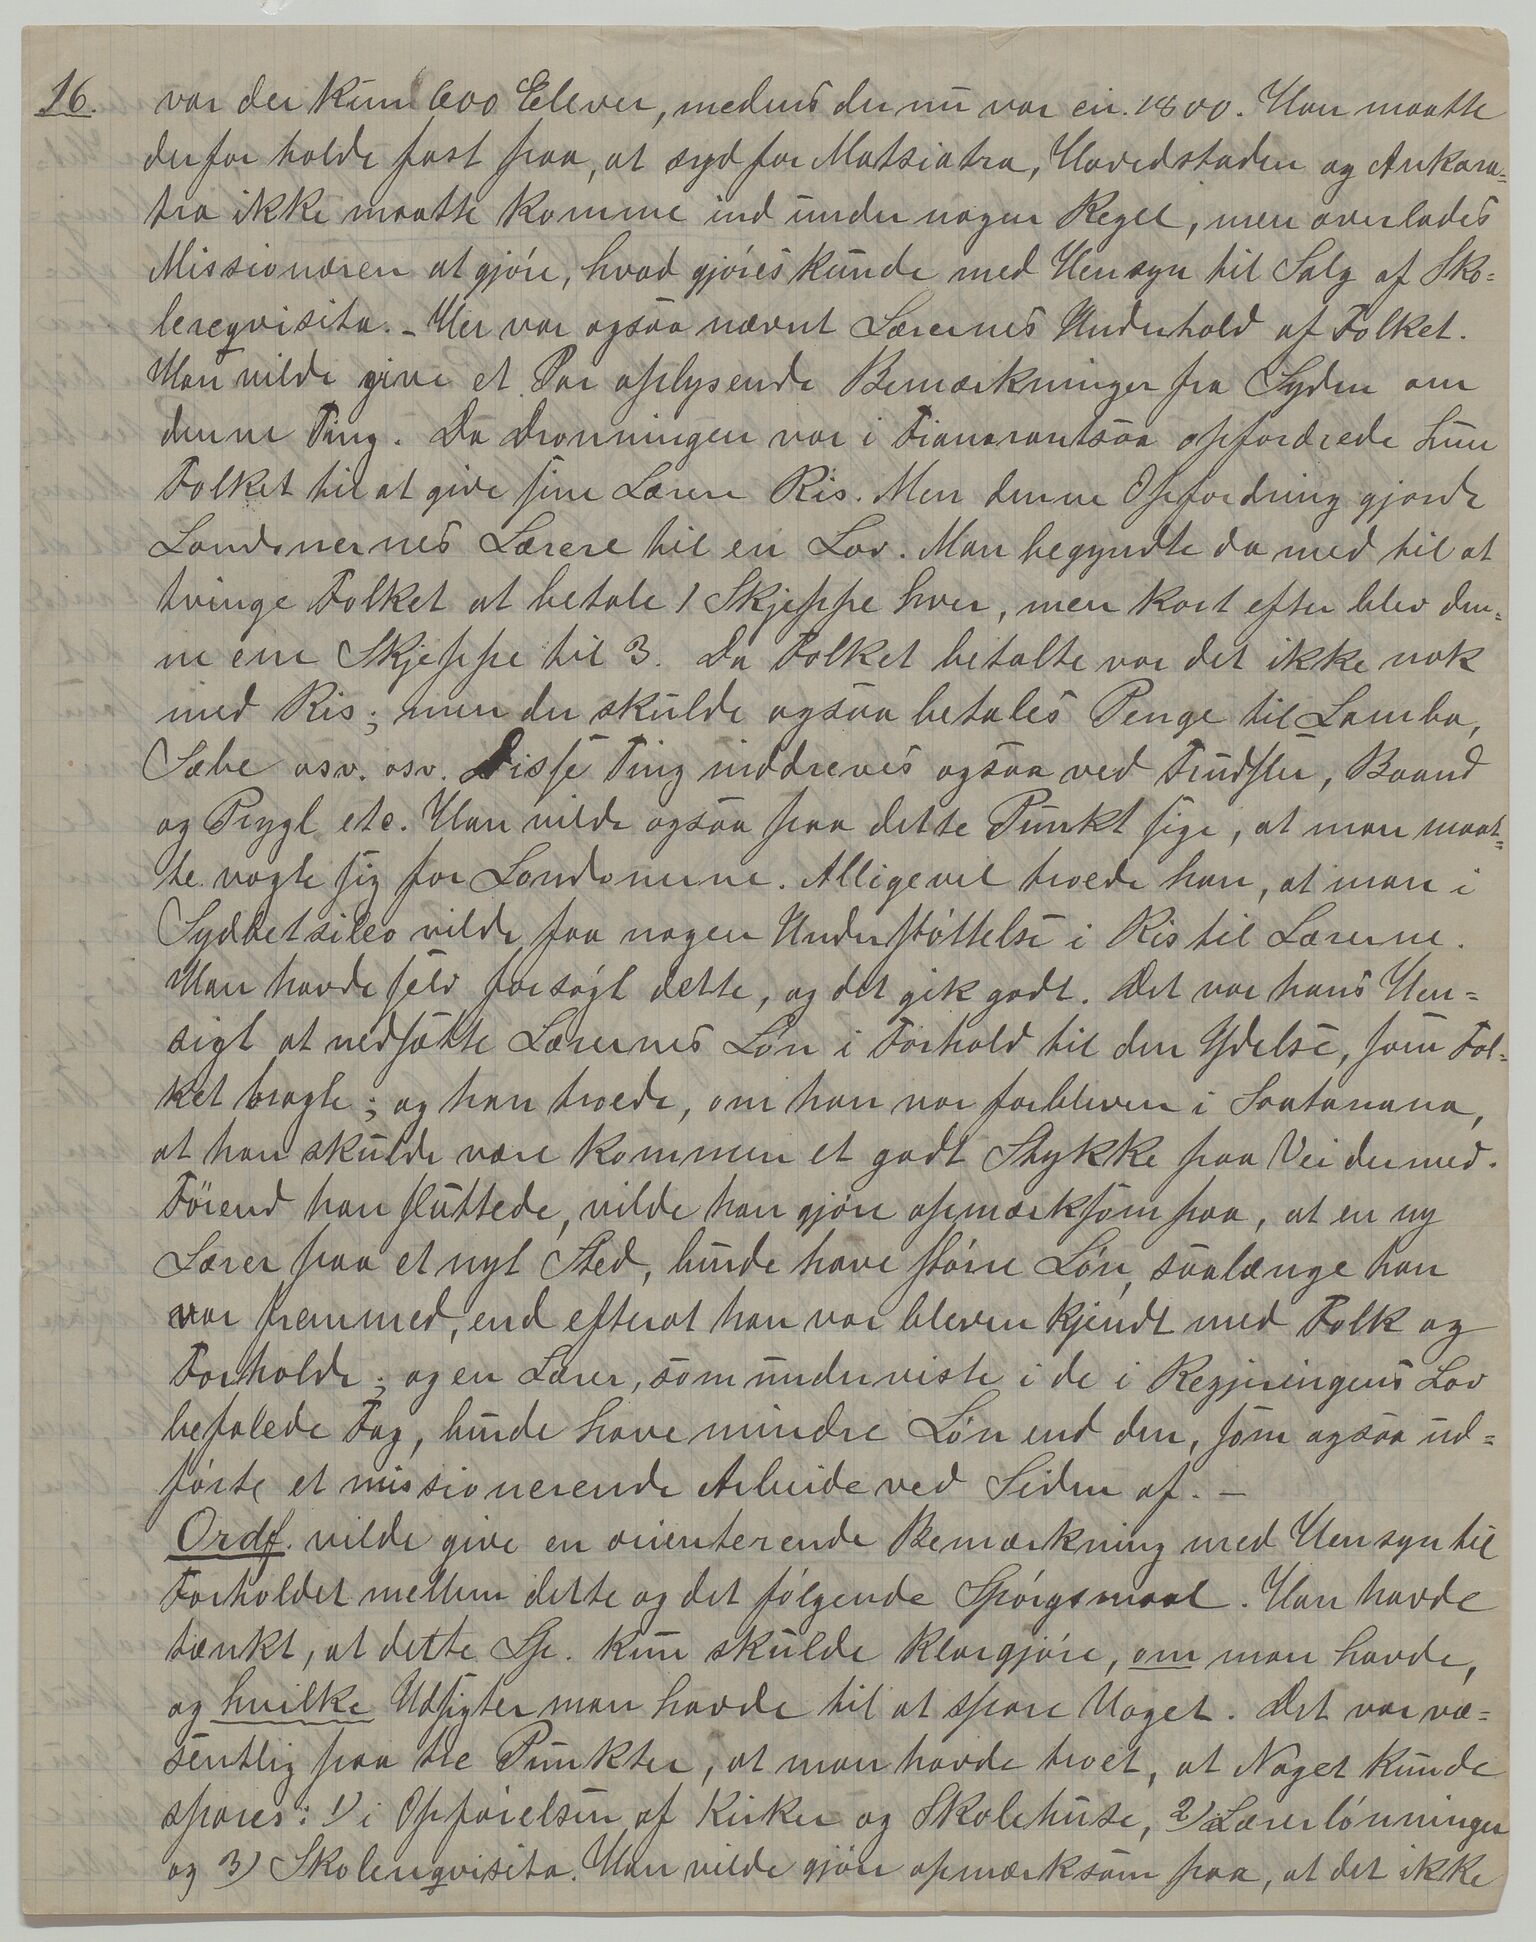 16. var der kun 600 Elever, medens der nu var cir. 1800. Han maatte
derfor holde fast paa, at syd for Matsiatra, Hovedstaden og Ankara-
tra ikke maatte komme ind under nogen Regel, men overlades
Missionæren at gjøre, hvad gjøres kunde med Hensyn til Salg af Sko-
lereqvisita. – Her var ogsaa nævnt Lærernes Underhold af Folket.
Han vilde give et Par oplysende Bemærkninger fra Syden om
denne Ting. Da Dronningen var i Fianarantsoa opfordrede hun
Folket til at give sine Lærere Ris. Men denne Opfordring gjorde
Londonernes Lærere til en Lov. Man begyndte da med til at
tvinge Folket at betale 1 Skjeppe hver, men kort efter blev den-
ne ene Skjeppe til 3. Da Folket betalte var det ikke nok
med Ris; men der skulde ogsaa betales Penge til Lamba,
Sæbe osv. osv. Disse Ting inddreves ogsaa ved Trudsler, Baand
og Prygl etc. Han vilde ogsaa paa dette Punkt sige, at man maat-
te vogte sig for Londonerne. Alligevel troede han, at man i
Sydbetsileo vilde faa nogen Understøttelse i Ris til Lærerne.
Han havde selv forsøgt dette, og det gik godt. Det var hans Hen-
sigt at nedsætte Lærernes Løn i Forhold til den Ydelse, som Fol-
ket bragte; og han troede, om han var forbleven i Soatanana,
at han skulde være kommen et godt Stykke paa Vei dermed.
Førend han sluttede, vilde han gjøre opmærksom paa, at en ny
Lærer paa et nyt Sted, burde have større Løn, saalænge han
var fremmed, end efterat han var bleven kjendt med Folk og
Forholde; og en Lærer, som underviste i de i Regjeringens Lov
befalede Fag, burde have mindre Løn end den, som ogsaa ud-
førte et missionerende Arbeide ved Siden af. –
Ordf. vilde give en orienterende Bemærkning med Hensyn til
Forholdet mellem dette og det følgende Spørgsmaal. Han havde
tænkt, at dette Sp. kun skulde klargjøre, om man havde,
og hvilke Udsigter man havde til at spare Noget. Det var væ-
sentlig paa tre Punkter, at man havde troet, at Noget kunde
spares: 1) i Opførelsen af Kirker og Skolehuse, 2) Lærerlønninger
og 3) Skolereqvisita. Han vilde gjøre opmærksom paa, at det ikke